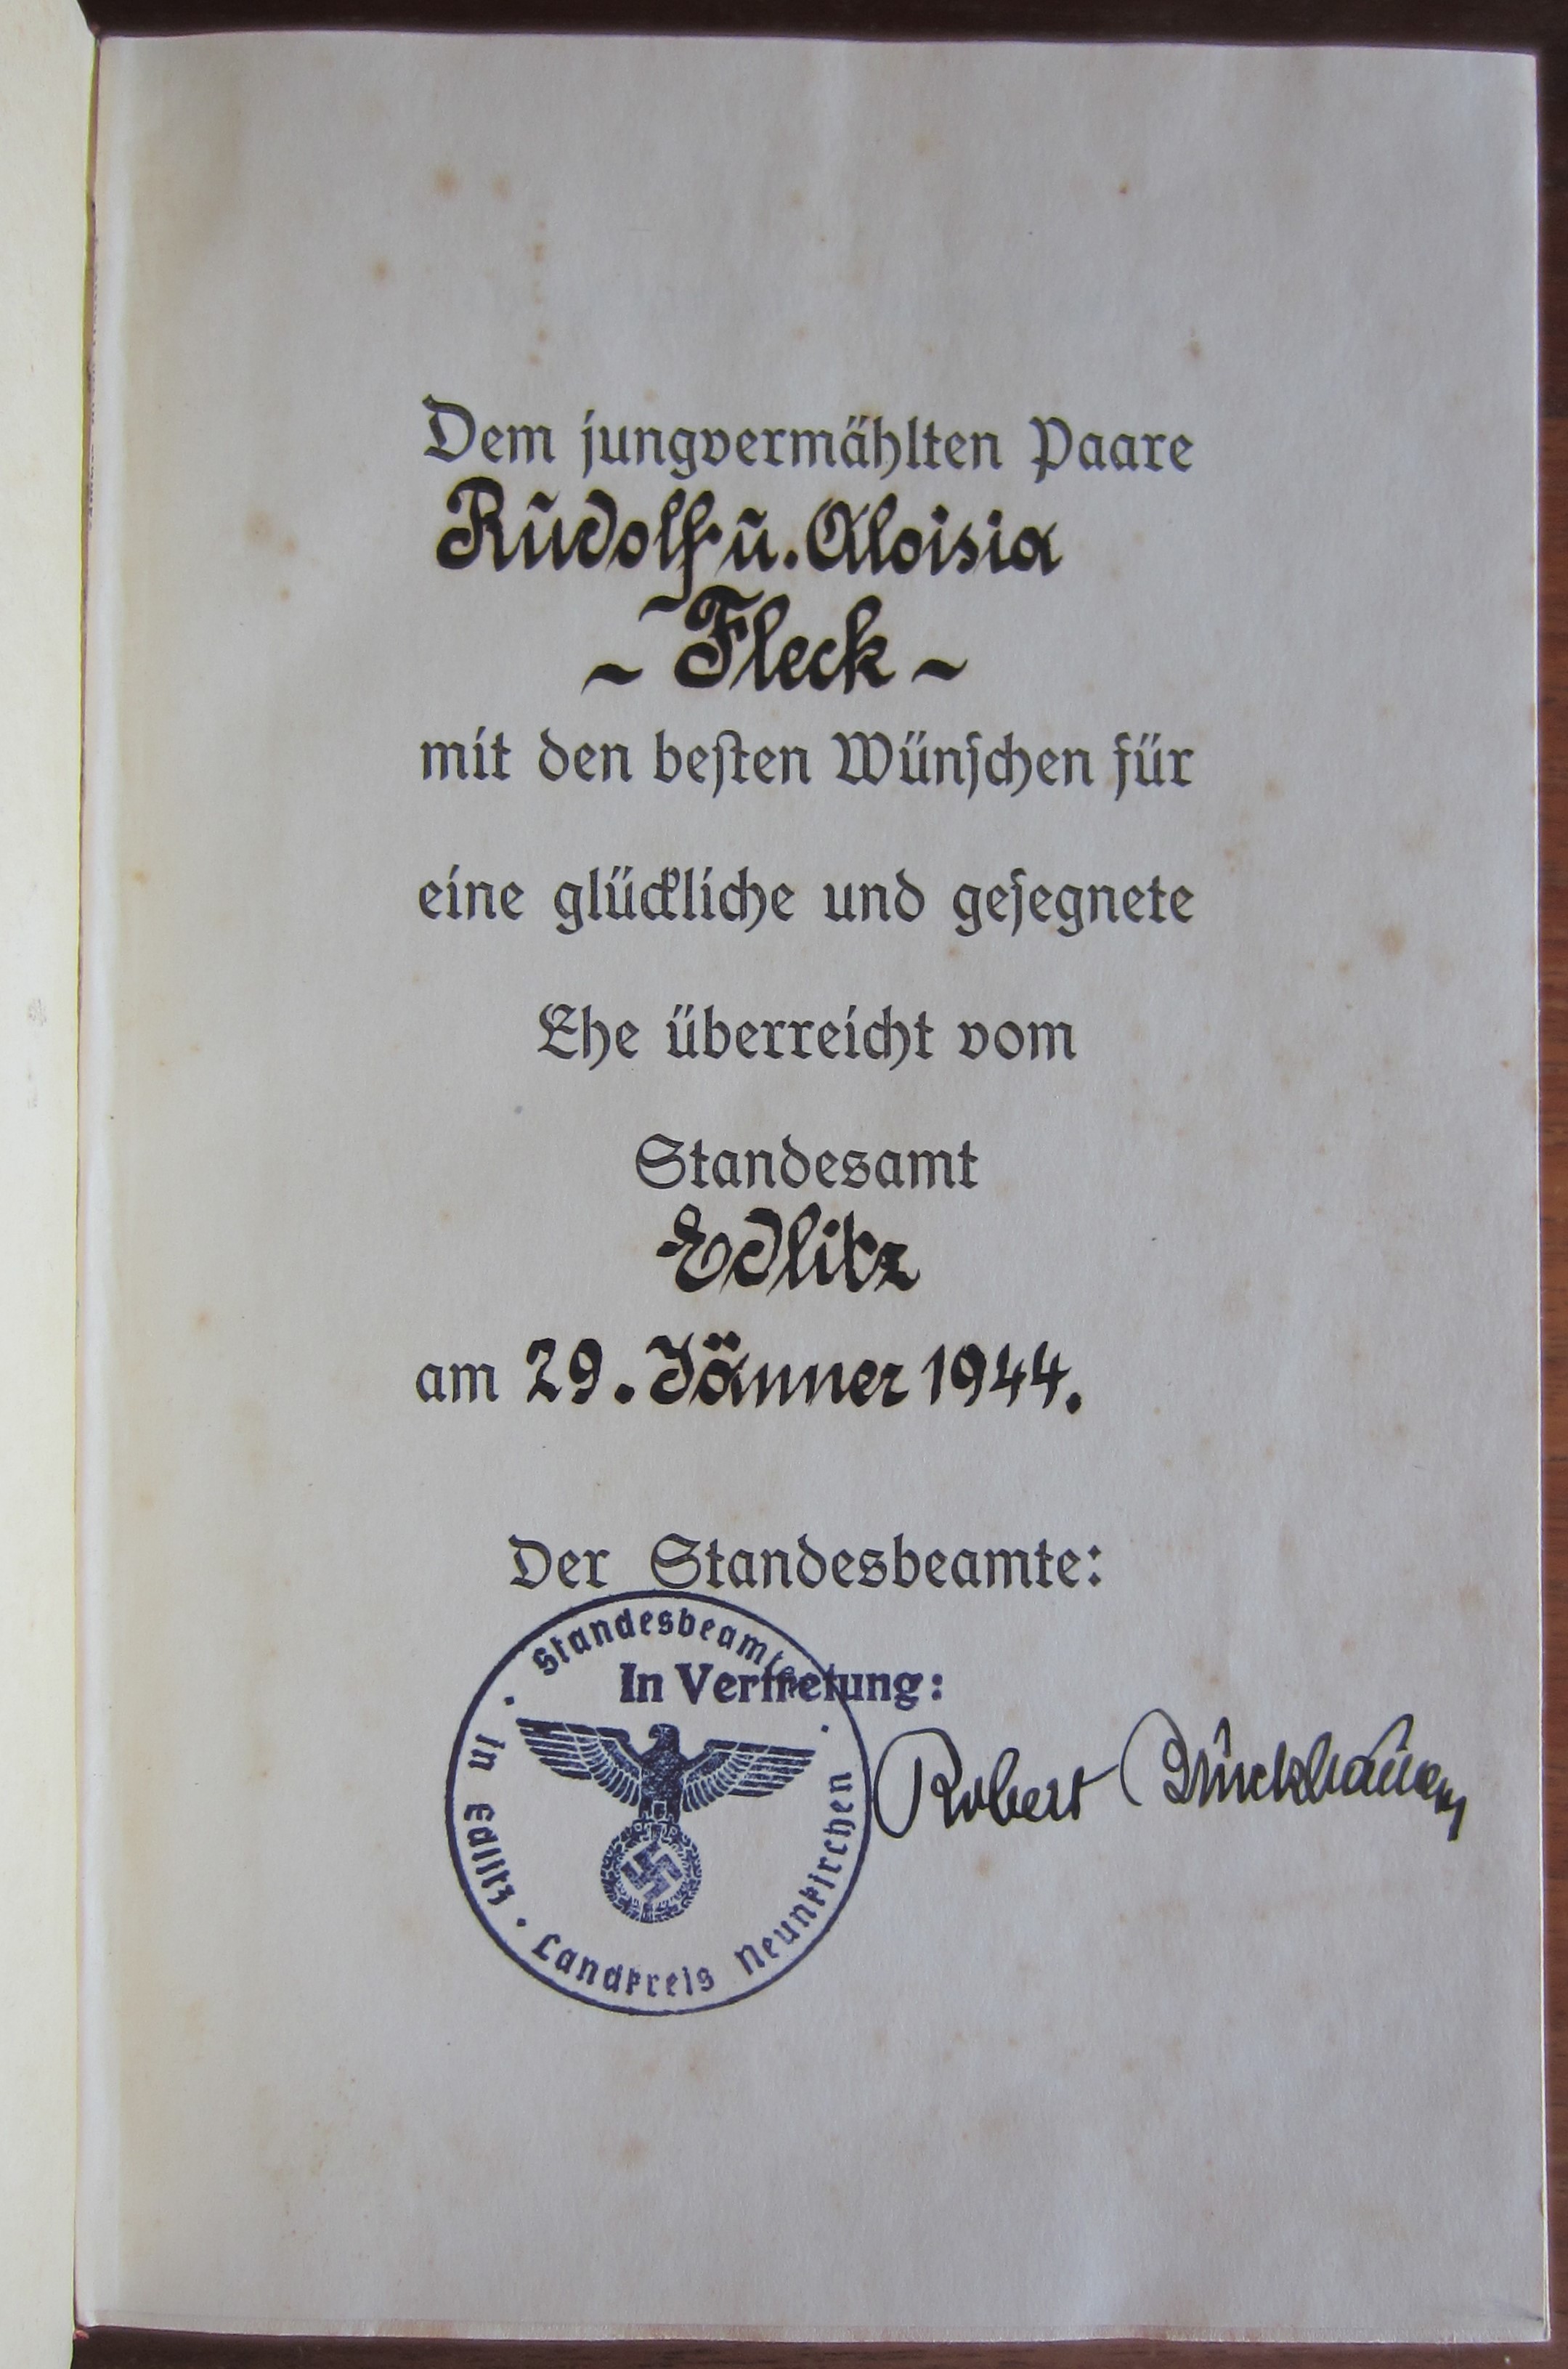 Dem jungvermählten Paare
Rudolf u. Aloisia
~ Fleck ~
mit den besten Wünschen für
eine glückliche und gesegnete
Ehe überreicht vom
Standesamt
Edlitz
am 29. Jänner 1944.
Der Standesbeamte:
In Vertretung:
Robert
· Standesbeamter · in Edlitz · Landkreis Neunkirchen